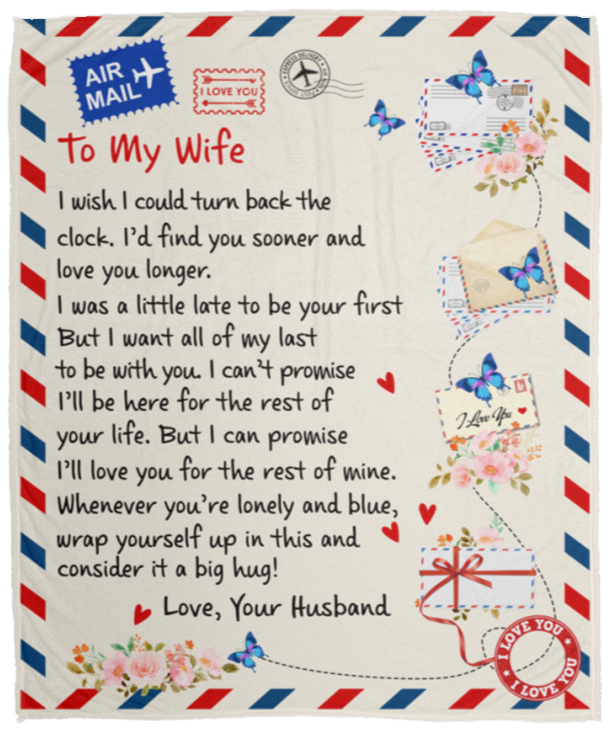 AIR
MAIL
I LOVE YOU
To My Wife
I wish I could turn back the
clock. I'd find you sooner and
love you longer.
I was a little late to be your first
But I want all of my last
to be with you. I can't promise
I'll be here for the rest of
your life. But I can promise
I'll love you for the rest of mine.
Whenever you're lonely and blue,
wrap yourself up in this and
consider it a big hug!
Love, Your Husband
I Love You
I LOVE YOU
I LOVE YOU